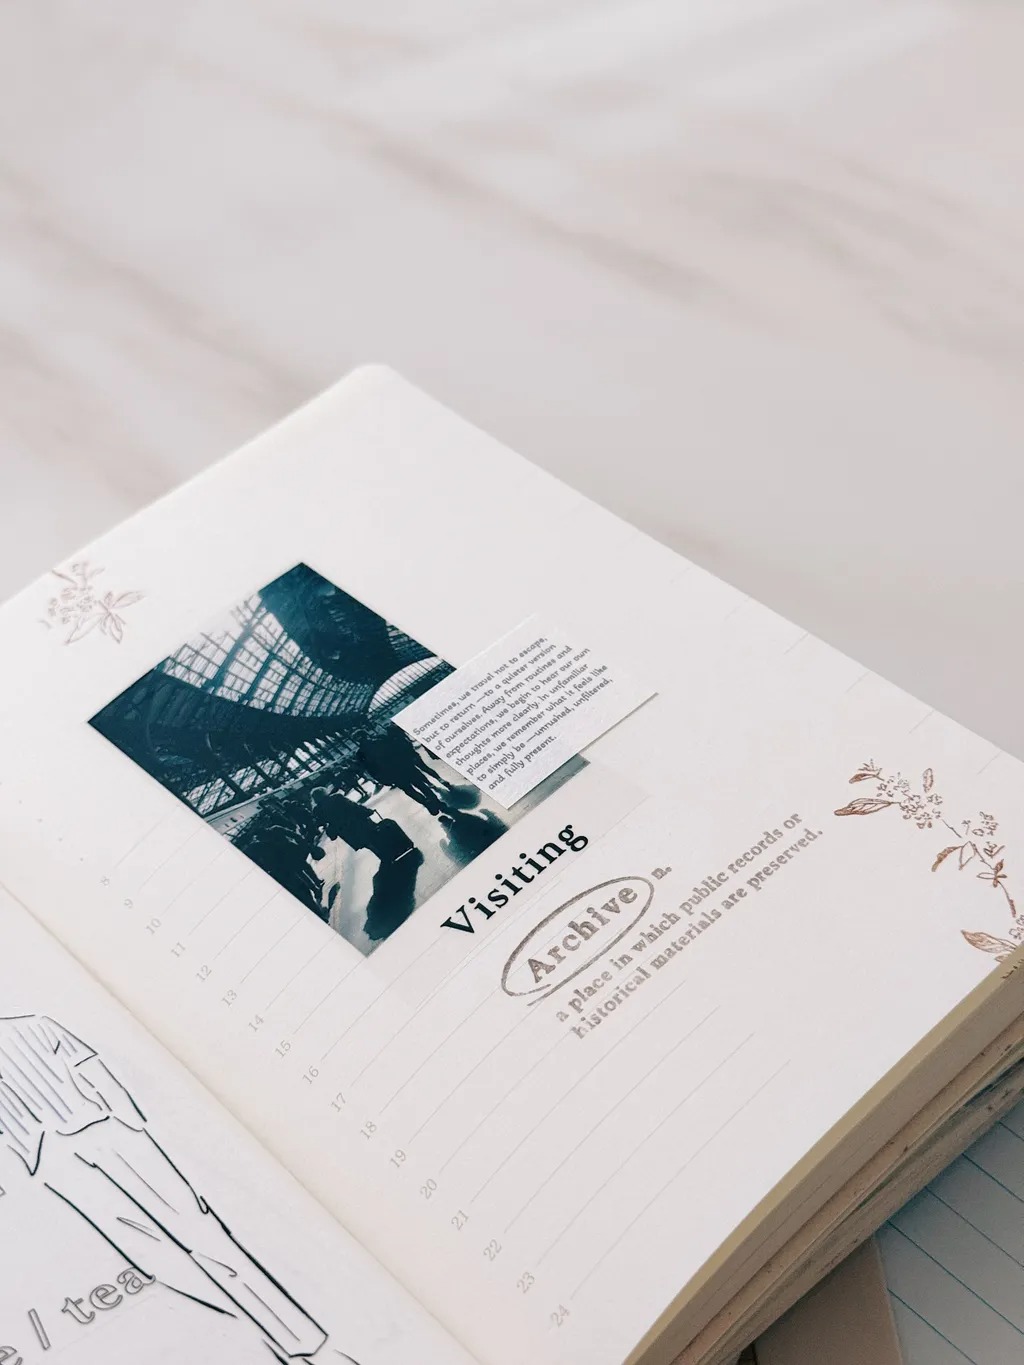 Sometimes, we travel not to escape,
but to return —to a quieter version
of ourselves. Away from routines and
expectations, we begin to hear our own
thoughts more clearly. In unfamiliar
places, we remember what it feels like
to simply be —unrushed, unfiltered,
and fully present.
Visiting
Archive n.
a place in which public records or
historical materials are preserved.
8
9
10
11
12
13
14
15
16
17
18
19
20
21
22
23
24
e / tea